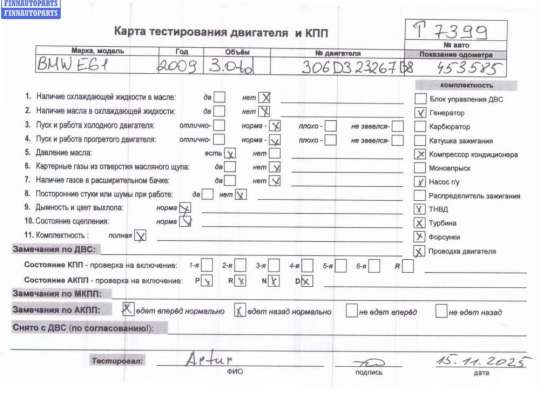 FINNAUTOPARTS
FINNAUTOPARTS
Карта тестирования двигателя и КПП
T 7399
№ авто
Марка, модель Год Объём № двигателя Показание одометра
BMW E61 2009 3.0td 306D323267D8 453585
комплектность
1. Наличие охлаждающей жидкости в масле: да нет X
2. Наличие масла в охлаждающей жидкости: да нет X
3. Пуск и работа холодного двигателя: отлично- норма - X плохо - не завелся-
4. Пуск и работа прогретого двигателя: отлично- норма - X плохо - не завелся-
5. Давление масла: есть X нет
6. Картерные газы из отверстия масляного щупа: да нет X
7. Наличие газов в расширительном бачке: да нет X
8. Посторонние стуки или шумы при работе: да нет X
9. Дымность и цвет выхлопа: норма X
10. Состояние сцепления: норма X
11. Комплектность : полная X
Блок управления ДВС
X Генератор
Карбюратор
Катушка зажигания
X Компрессор кондиционера
Моновпрыск
X Насос г/у
Распределитель зажигания
X ТНВД
X Турбина
X Форсунки
X Проводка двигателя
Замечания по ДВС:
Состояние КПП - проверка на включение: 1-я 2-я 3-я 4-я 5-я 6-я R
Состояние АКПП - проверка на включение: P X R X N X D X
Замечания по МКПП:
Замечания по АКПП: X едет вперёд нормально X едет назад нормально не едет вперёд не едет назад
Снято с ДВС (по согласованию!):
Тестировал: Artur 15.11.2025
ФИО подпись дата